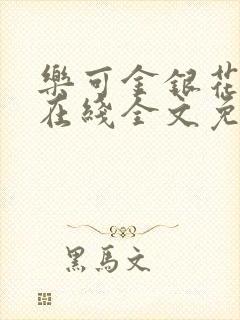 樂可金銀花
在綫全文免
黑馬文